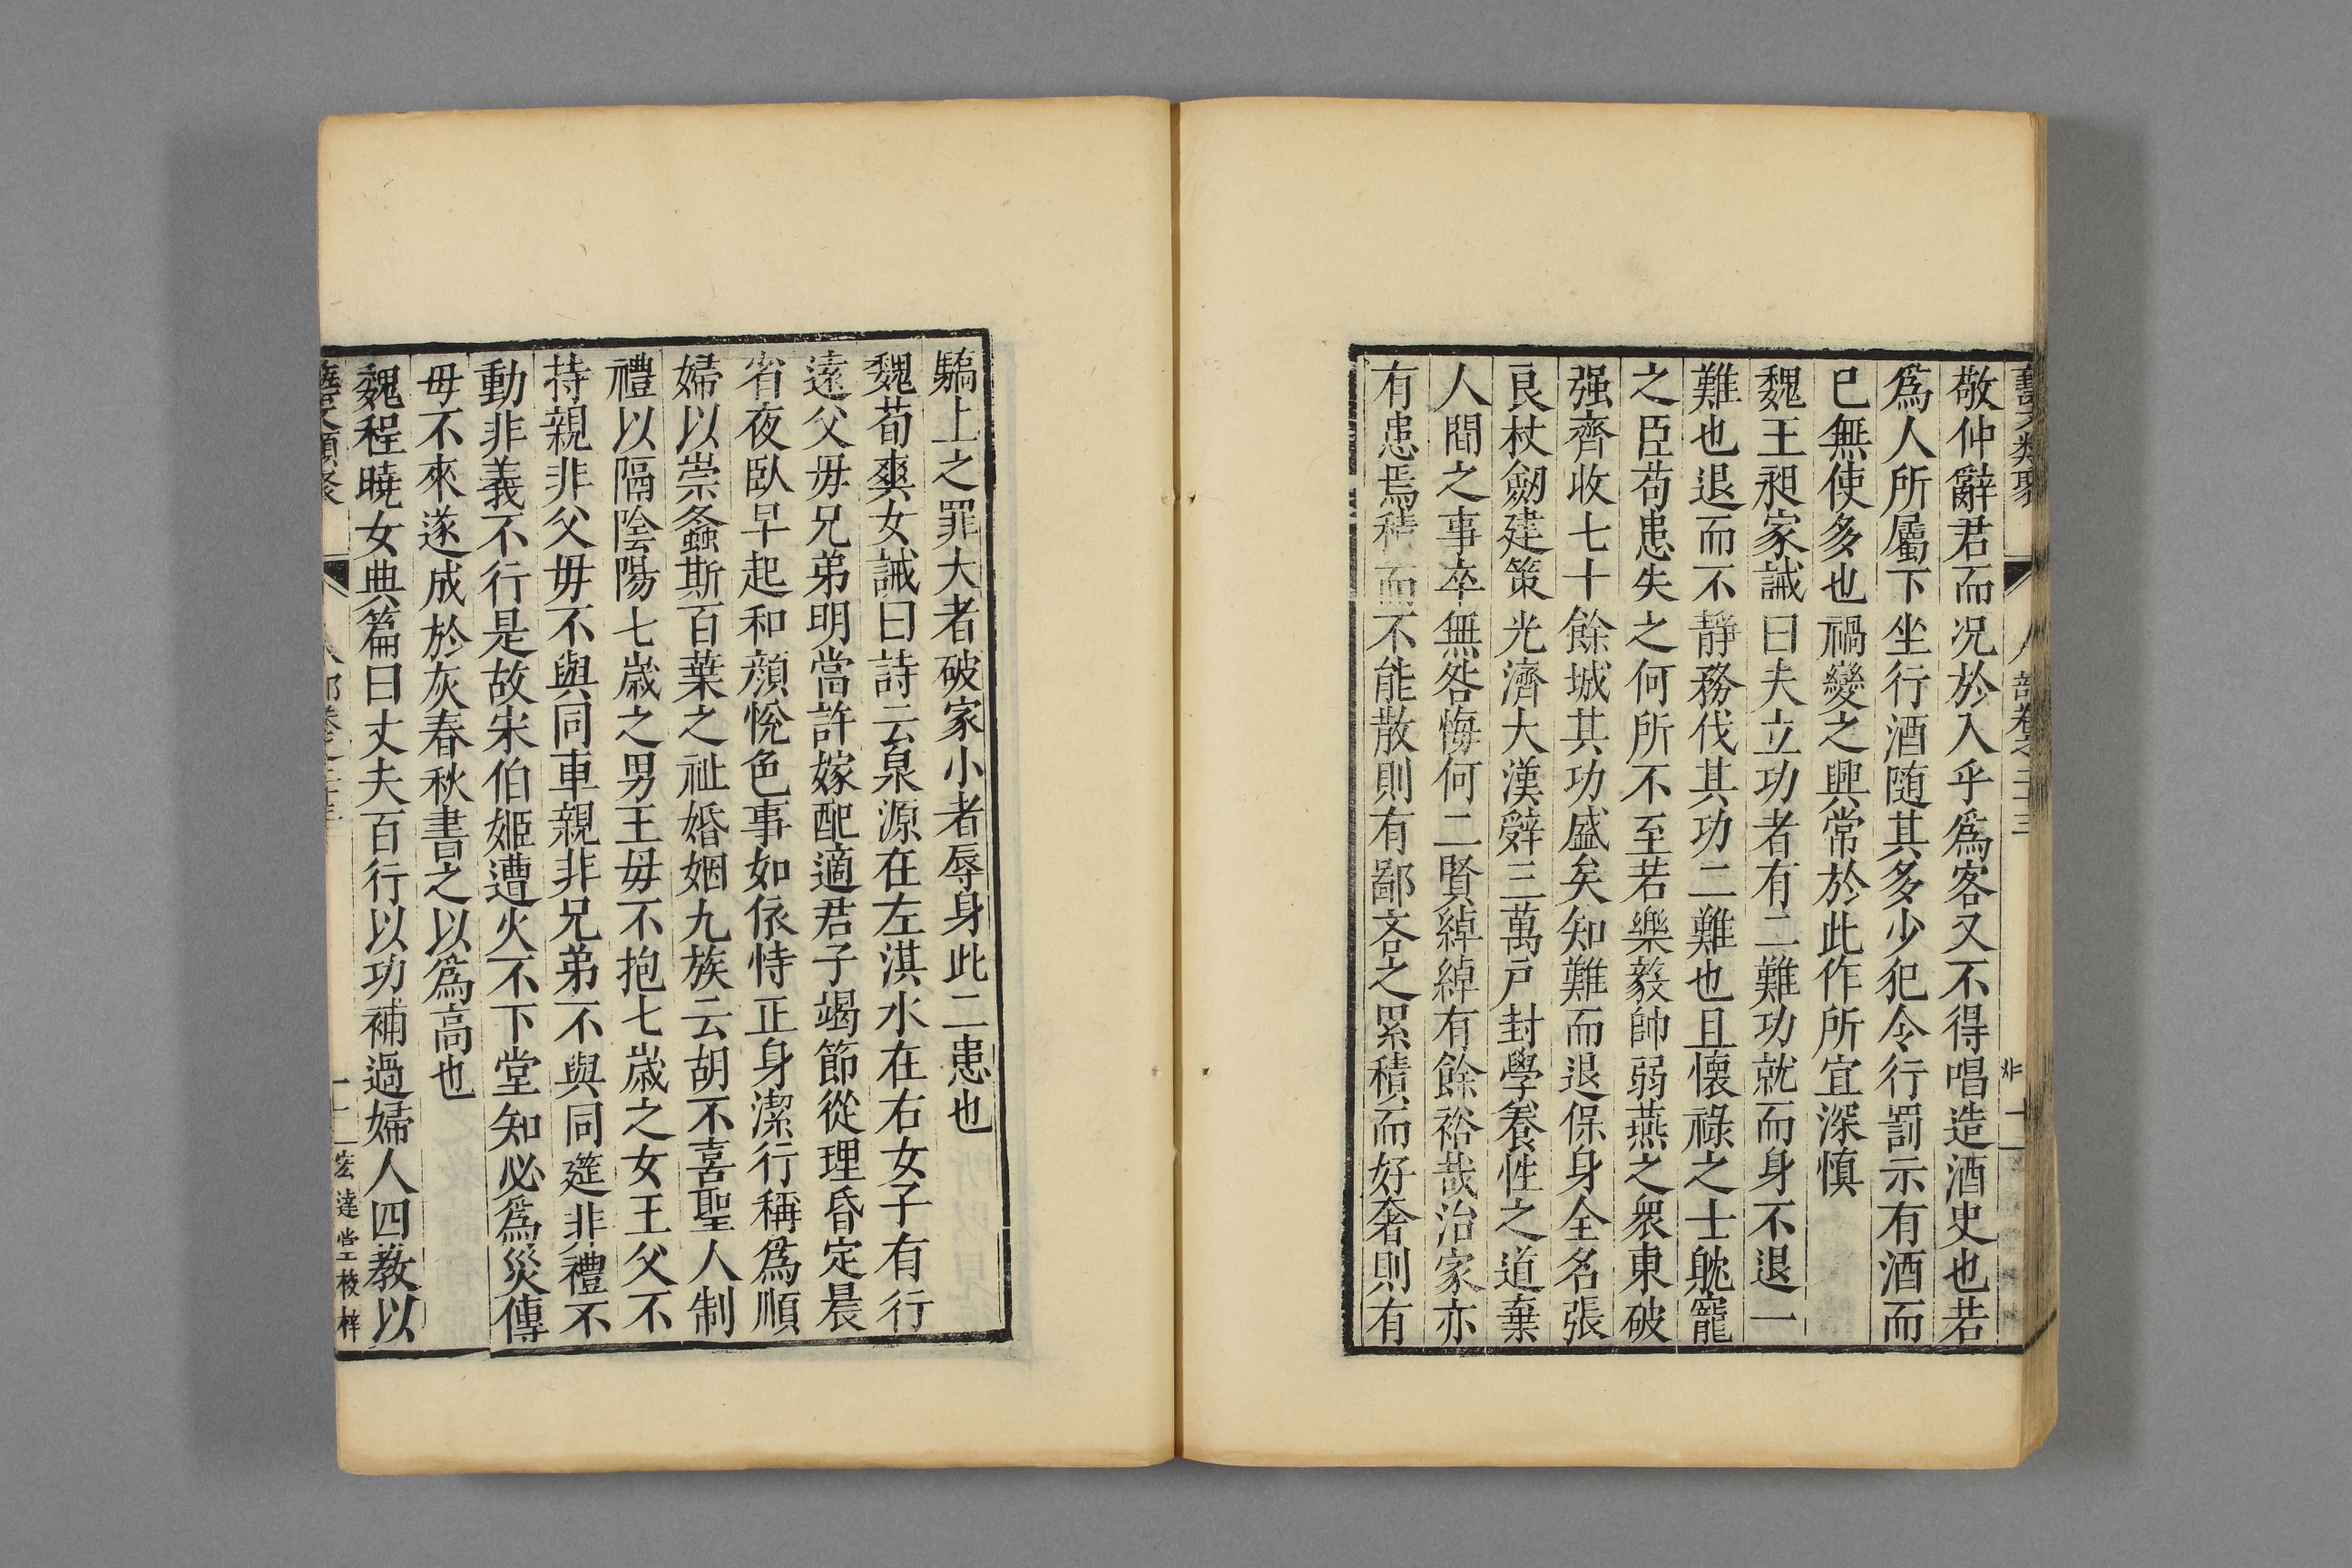 藝文類聚 人部卷之二十三
敬仲辭君而况於入乎爲客又不得唱造酒史也若
爲人所屬下坐行酒隨其多少犯令行罰示有酒而
已無使多也禍變之興常於此作所宜深慎
魏王昶家誡曰夫立功者有二難功就而身不退一
難也退而不靜務伐其功二難也且懷祿之士耽寵
之臣苟患失之何所不至若樂毅帥弱燕之衆東破
强齊收七十餘城其功盛矣知難而退保身全名張
良杖劒建策光濟大漢辤三萬戶封學養性之道棄
人間之事卒無咎悔何二賢綽綽有餘裕哉治家亦
有患焉積而不能散則有鄙吝之累積而好奢則有
驕上之罪大者破家小者辱身此二患也
魏荀爽女誡曰詩云泉源在左淇水在右女子有行
遠父毋兄弟明當許嫁配適君子竭節從理昏定晨
省夜臥早起和顏悅色事如依恃正身潔行稱爲順
婦以崇螽斯百葉之祉婚姻九族云胡不喜聖人制
禮以隔陰陽七歲之男王毋不抱七歲之女王父不
持親非父毋不與同車親非兄弟不與同筵非禮不
動非義不行是故宋伯姬遭火不下堂知必爲災傳
毋不來遂成於灰春秋書之以爲高也
魏程曉女典篇曰丈夫百行以功補過婦人四教以
藝文類聚 人部卷之二十三 十一 宏達堂校梓